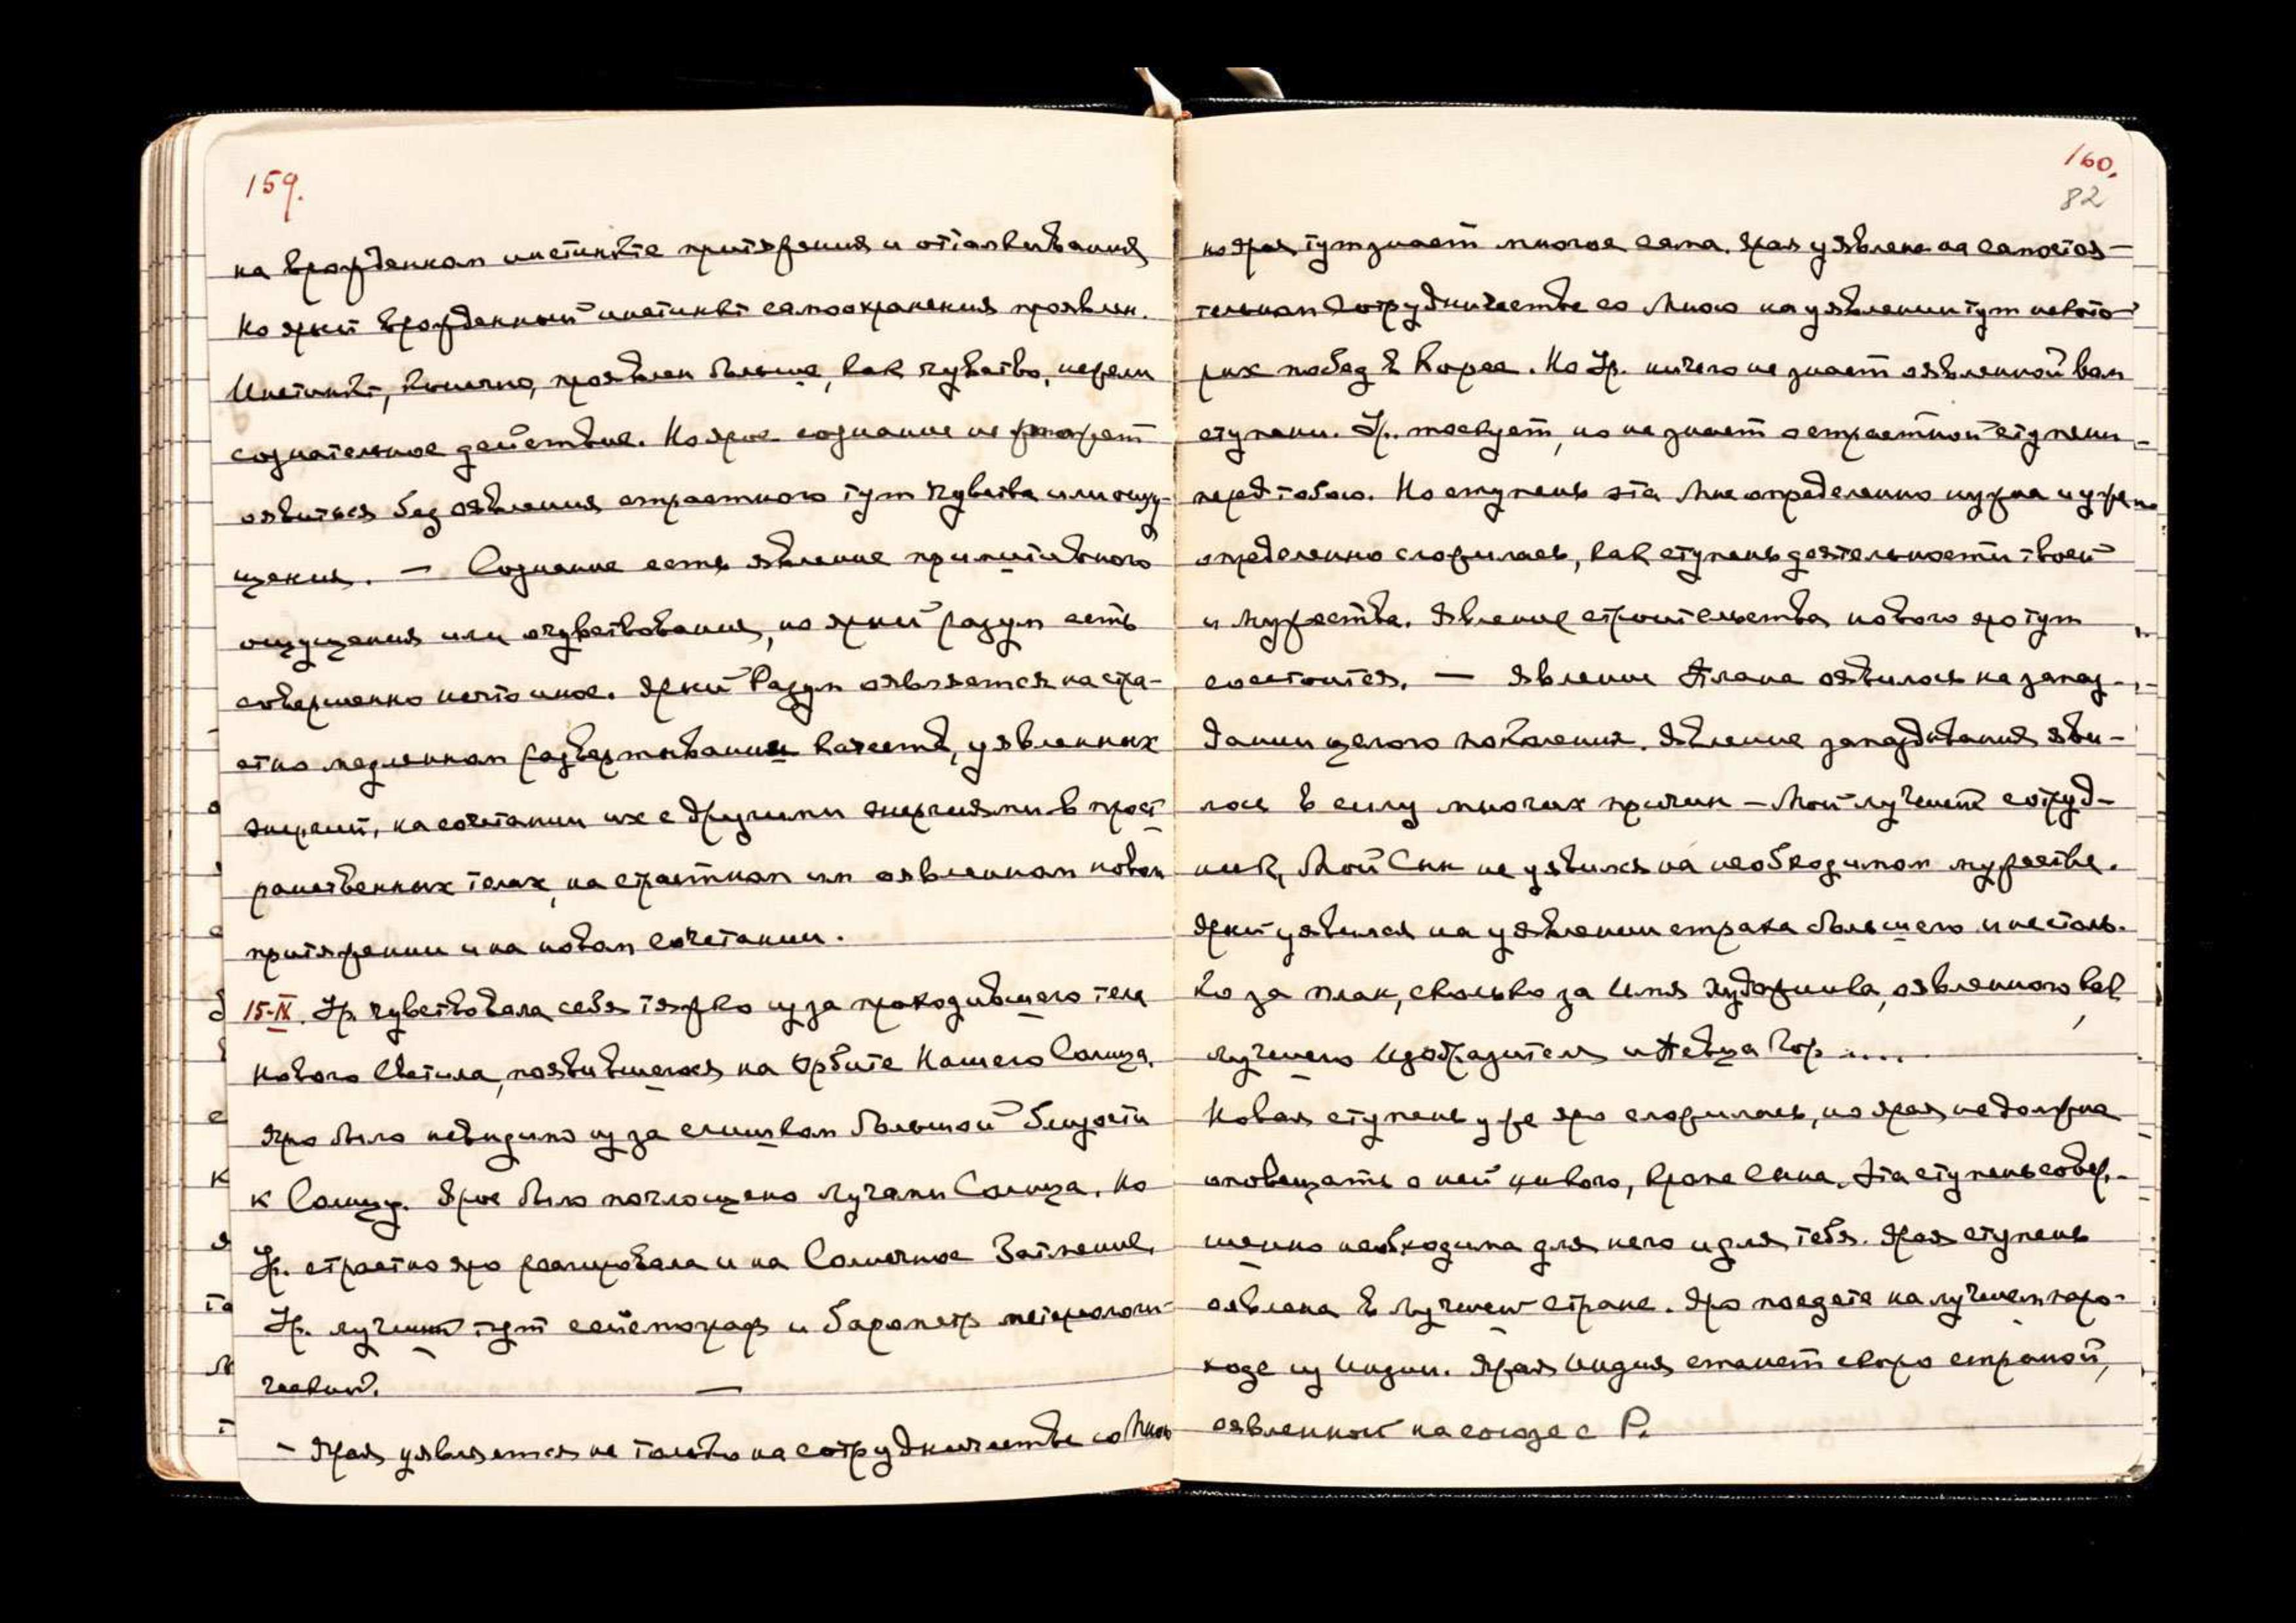 159.
на врожденном инстинкте притяжения и отталкивания
Но яркий врожденный инстинкт самоохранения проявлен.
Инстинкт, конечно, проявлен больше, как чувство, нежели
сознательное действие. Но ярое сознание не может
оявиться без оявления страстного тум чувства или ощу-
щения. — Сознание есть явление примитивного
ощущения или очувствования, но яркий разум есть
совершенно нечто иное. Яркий Разум оявляется на стра-
стно медленном развертывании качеств, уявленных
энергий, на сочетании их с другими энергиями в прост
ранственных телах, на страстном им оявленном новом
притяжении и на новом сочетании.
15-IX. Ур. чувствовала себя тяжко из за проходившего тела
нового Светила, появившегося на Орбите Нашего Солнца,
Яро было невидимо из за слишком большой близости
к Солнцу. Ярое было поглощено лучами Солнца. Но
Ур. страстно яро реагировала и на Солнечное Затмение.
Ур. лучший тут сейсмограф и барометр метереологи-
ческий. —
- Ярая уявляется не только на сотрудничестве со Мною
160.
82
но ярая тут знает многое сама. Ярая уявлена на самостоя-
тельном Сотрудничестве со Мною на уявлении тут некото-
рых побед в Корее. Но Ур. ничего не знает о явленной вам
ступени. Ур. тоскует, но не знает о страстной ступени
перед тобою. Но ступень эта Мне определенно нужна и уже
определенно сложилась, как ступень деятельности твоей
и Мужества. Явление строительства нового яро тут
состоится. — Явление Плана оявилось на запаз-
дании целого поколения. Явление запаздывания яви-
лось в силу многих причин — Мой лучший сотруд-
ник, Мой Сын не уявился на необходимом мужестве.
Яркий уявился на уявлении страха большего и не столь-
ко за план, сколько за Имя Художника, оявленного как
лучшего Изобразителя и Певца Гор ....
Новая ступень уже яро сложилась, но ярая не должна
оповещать о ней никого, кроме Сына. Эта ступень совер-
шенно необходима для него и для тебя. Ярая ступень
оявлена в лучшей стране. Яро поедете на лучшем паро-
ходе из Индии. Ярая Индия станет скоро страной,
оявленной на союзе с Р.